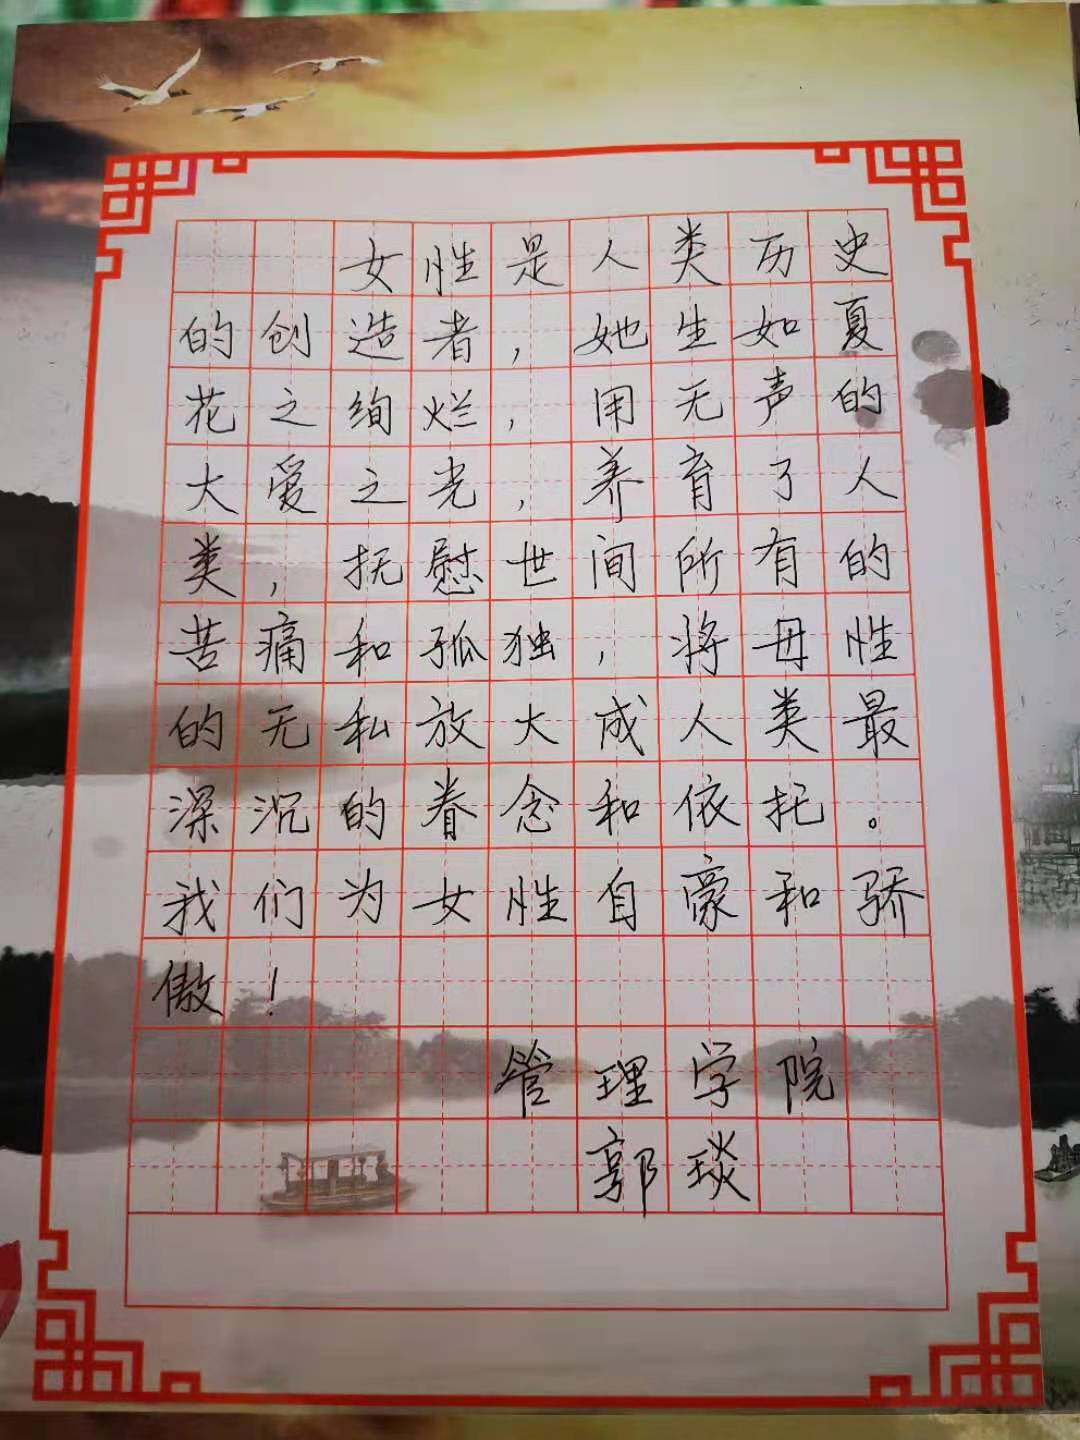 女性是人类历史
的创造者，她生如夏
花之绚烂，用无声的
大爱之光，养育了人
类，抚慰世间所有的
苦痛和孤独，将母性
的无私放大成人类最
深沉的眷念和依托。
我们为女性自豪和骄
傲！
管理学院
郭琰